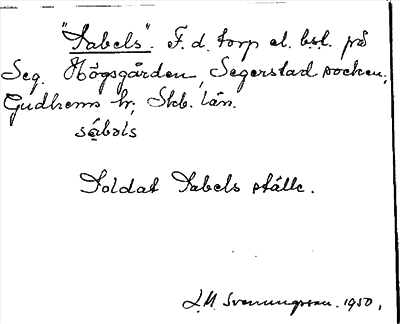 "Sabels". F. d. torp el. bst. på
Seg. Högsgården, Segerstad socken,
Gudhems hr, Skb. län.
sábəls
Soldat Sabels ställe.
S. M. Svenungsson. 1950.